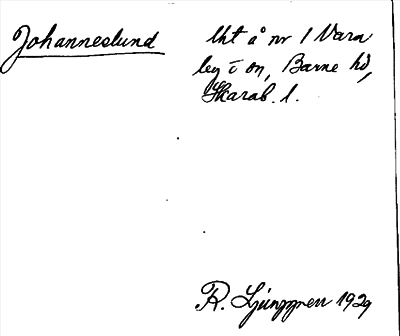 Johanneslund
lht å nr 1 Vara
leg i on, Barne hd,
Skarab. l.
R. Ljunggren 1929